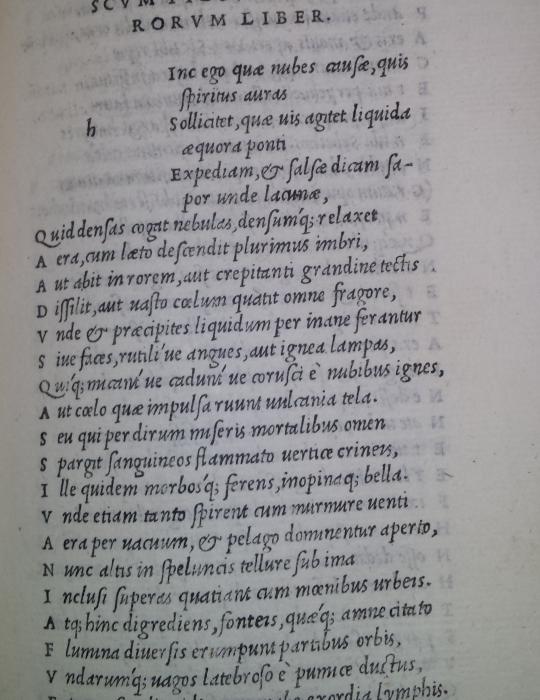 RORVM LIBER.
h
Inc ego quæ nubes causæ, quis
spiritus auras
Sollicitet, quæ uis agitet liquida
æquora ponti
Expediam, & salsæ dicam sa-
por unde lacunæ,
Quid densas cogat nebulas, densumq; relaxet
A era, cum læto descendit plurimus imbri,
A ut abit in rorem, aut crepitanti grandine tectis
D issilit, aut uasto cœlum quatit omne fragore,
V nde & præcipites liquidum per inane ferantur
S iue faces, rutili'ue angues, aut ignea lampas,
Qui'q; micant'ue cadunt'ue corusci è nubibus ignes,
A ut cœlo quæ impulsa ruunt uulcania tela.
S eu qui per dirum miseris mortalibus omen
S pargit sanguineos flammato uertice crineis,
I lle quidem morbos'q; ferens, inopinaq; bella.
V nde etiam tanto spirent cum murmure uenti
A era per uacuum, & pelago dominentur aperto,
N unc altis in speluncis tellure sub ima
I nclusi superas quatiant cum mœnibus urbeis.
A tq; hinc digrediens, fonteis, quæ'q; amne citato
F lumina diuersis erumpunt partibus orbis,
V ndarum'q; uagos latebroso è pumice ductus,
exordia lymphis.